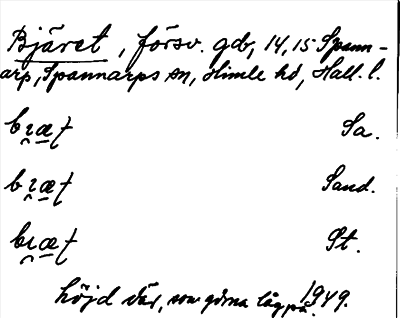 Bjäret, försv. gdn, 14, 15 Spann-
arp, Spannarps sn, Himle hd, Hall. l.
bɪæt Sa.
bɪæt Sand.
bɪæt St.
höjd där, som gdrna låg på. 1949.